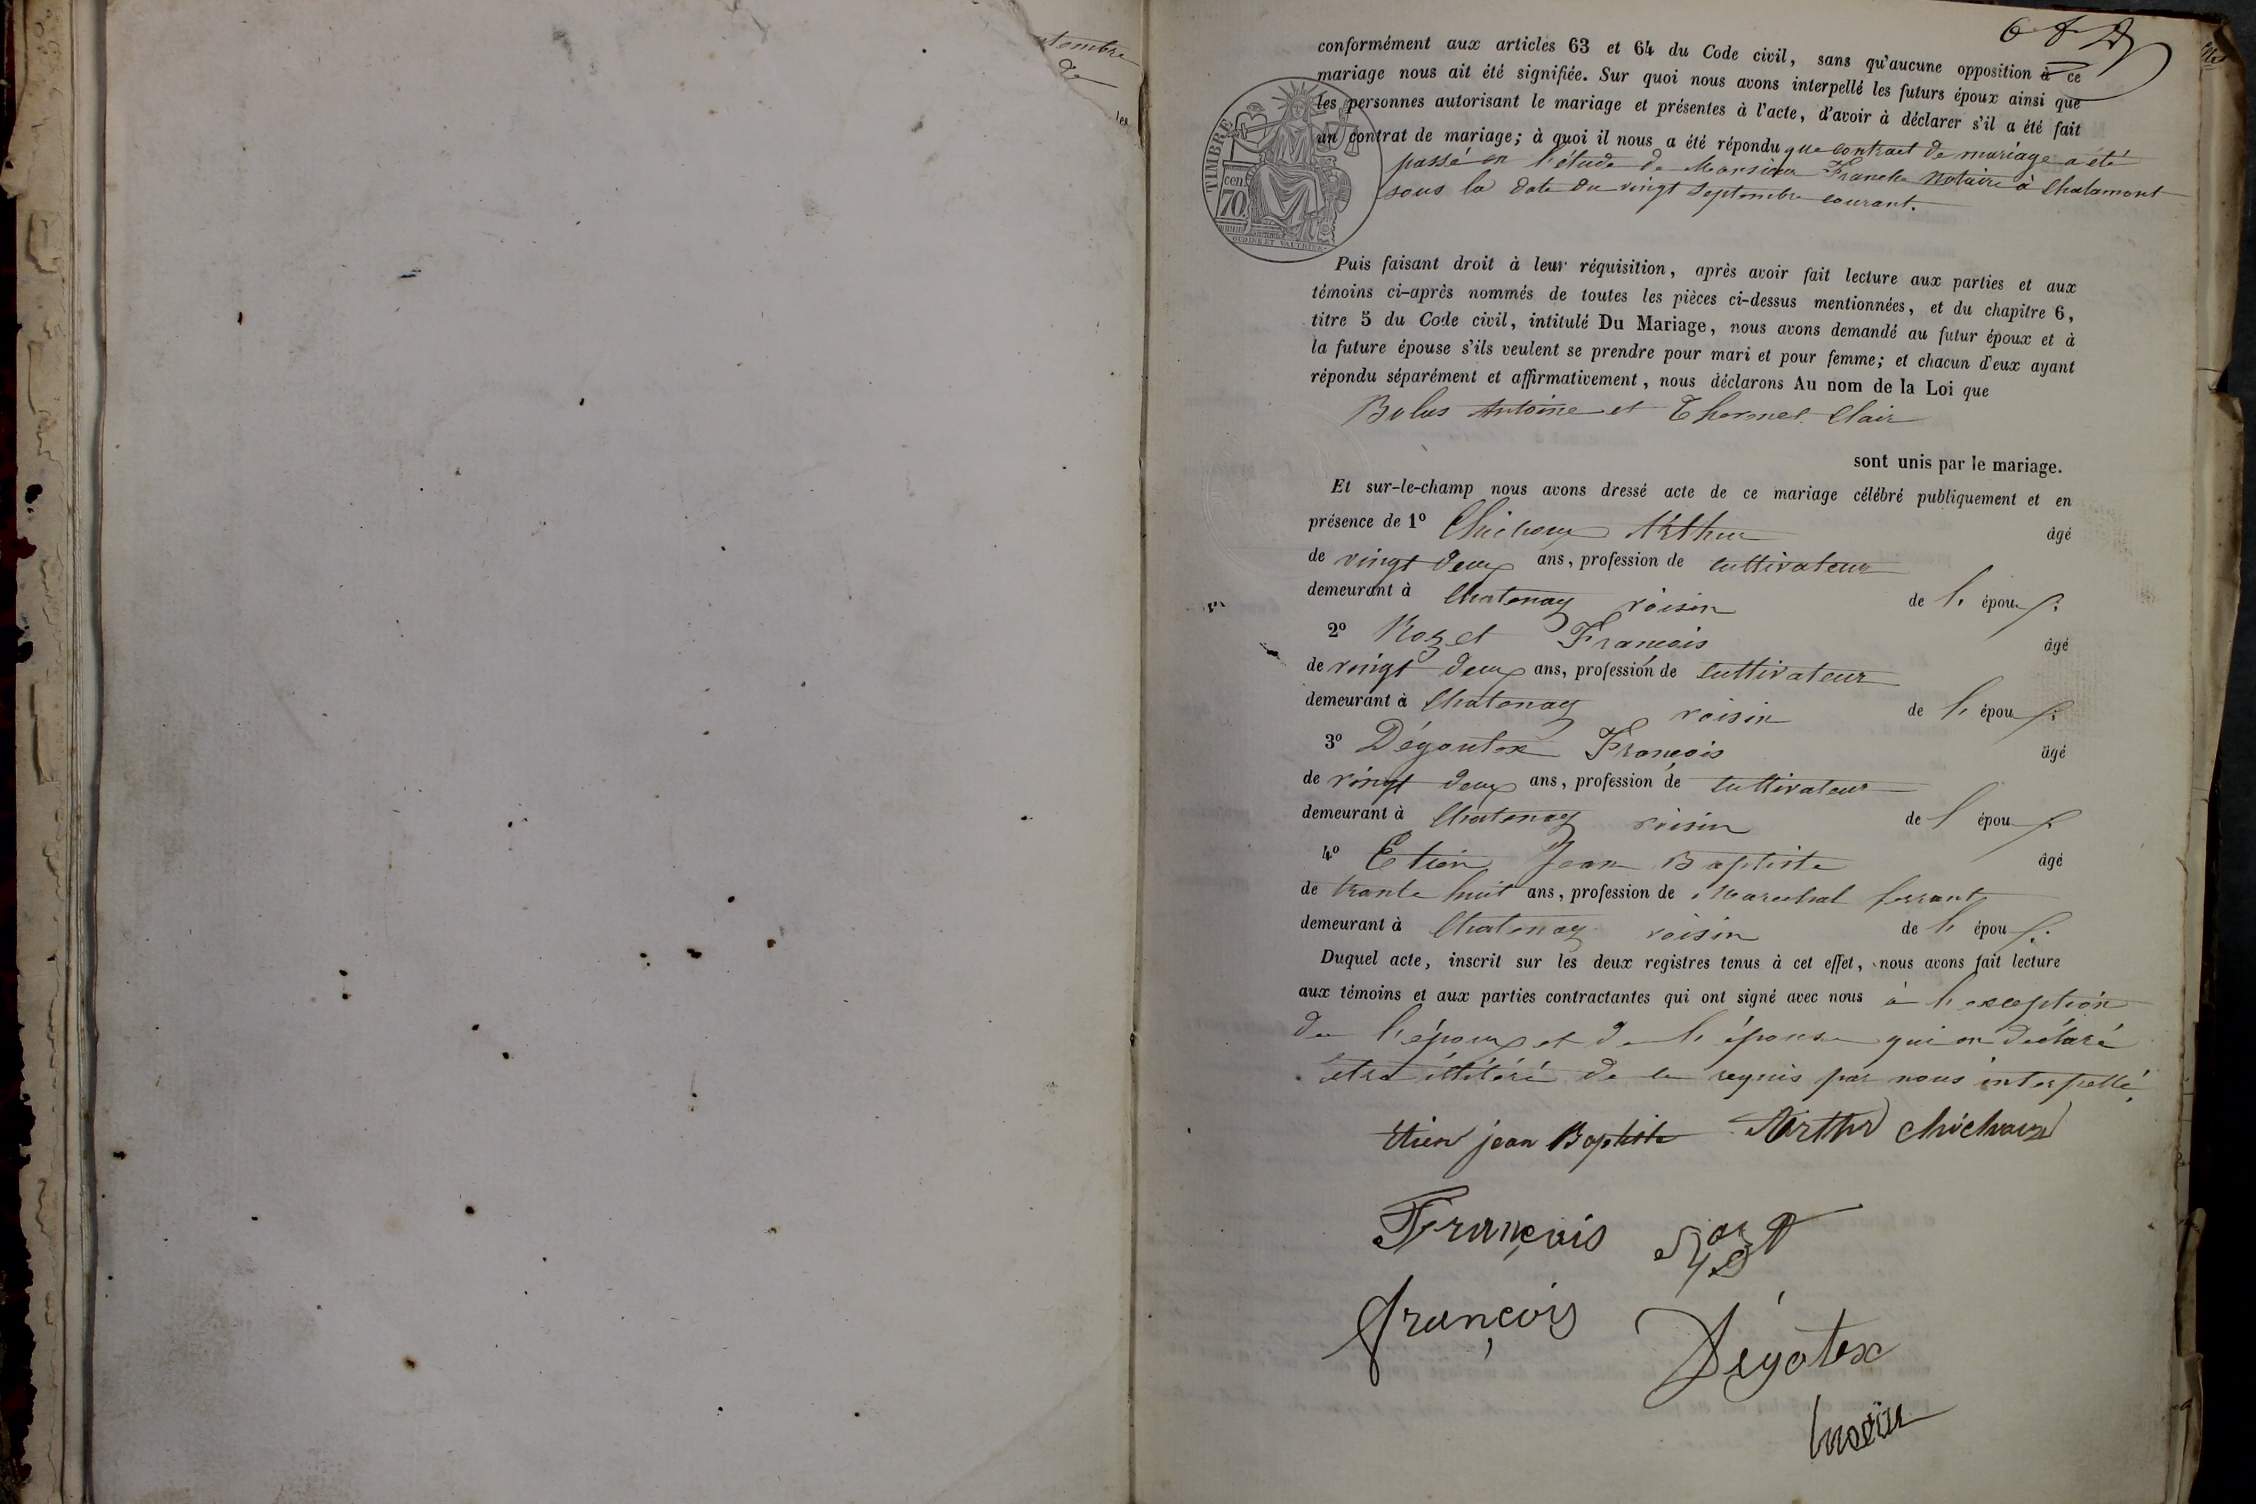 tembre
conformément aux articles 63 et 64 du Code civil, sans qu'aucune opposition à ce
mariage nous ait été signifiée. Sur quoi nous avons interpellé les futurs époux ainsi que
les personnes autorisant le mariage et présentes à l'acte, d'avoir à déclarer s'il a été fait
un contrat de mariage; à quoi il nous a été répondu que contract de mariage a été
passé en l'étude de Monsieur Franck Notaire à Chalamont
sous la date du vingt Septembre courant.
TIMBRE
70 cen.
Puis faisant droit à leur réquisition, après avoir fait lecture aux parties et aux
témoins ci-après nommés de toutes les pièces ci-dessus mentionnées, et du chapitre 6,
titre 5 du Code civil, intitulé Du Mariage, nous avons demandé au futur époux et à
la future épouse s'ils veulent se prendre pour mari et pour femme; et chacun d'eux ayant
répondu séparément et affirmativement, nous déclarons Au nom de la Loi que
Bolus Antoine et Thermet Clair
sont unis par le mariage.
Et sur-le-champ nous avons dressé acte de ce mariage célébré publiquement et en
présence de 1º Chichoux Arthur âgé
de vingt deux ans, profession de cultivateur
demeurant à Chatenay voisin de l' épou
2º Rozet Francois âgé
de vingt deux ans, profession de cultivateur
demeurant à Chatenay voisin de l' épou
3º Dégoutex François âgé
de vingt deux ans, profession de cultivateur
demeurant à Chatenay voisin de l épou
4º Etien Jean Baptiste âgé
de trante huit ans, profession de Marechal ferrant
demeurant à Chatenay voisin de l' épou
Duquel acte, inscrit sur les deux registres tenus à cet effet, nous avons fait lecture
aux témoins et aux parties contractantes qui ont signé avec nous à l'exception
de l'époux et de l'épouse qui on déclaré
être illitéré de ce requis par nous interpellé.
Etien jean Baptiste Arthur chichoux
François Rozet
françois Dégotex